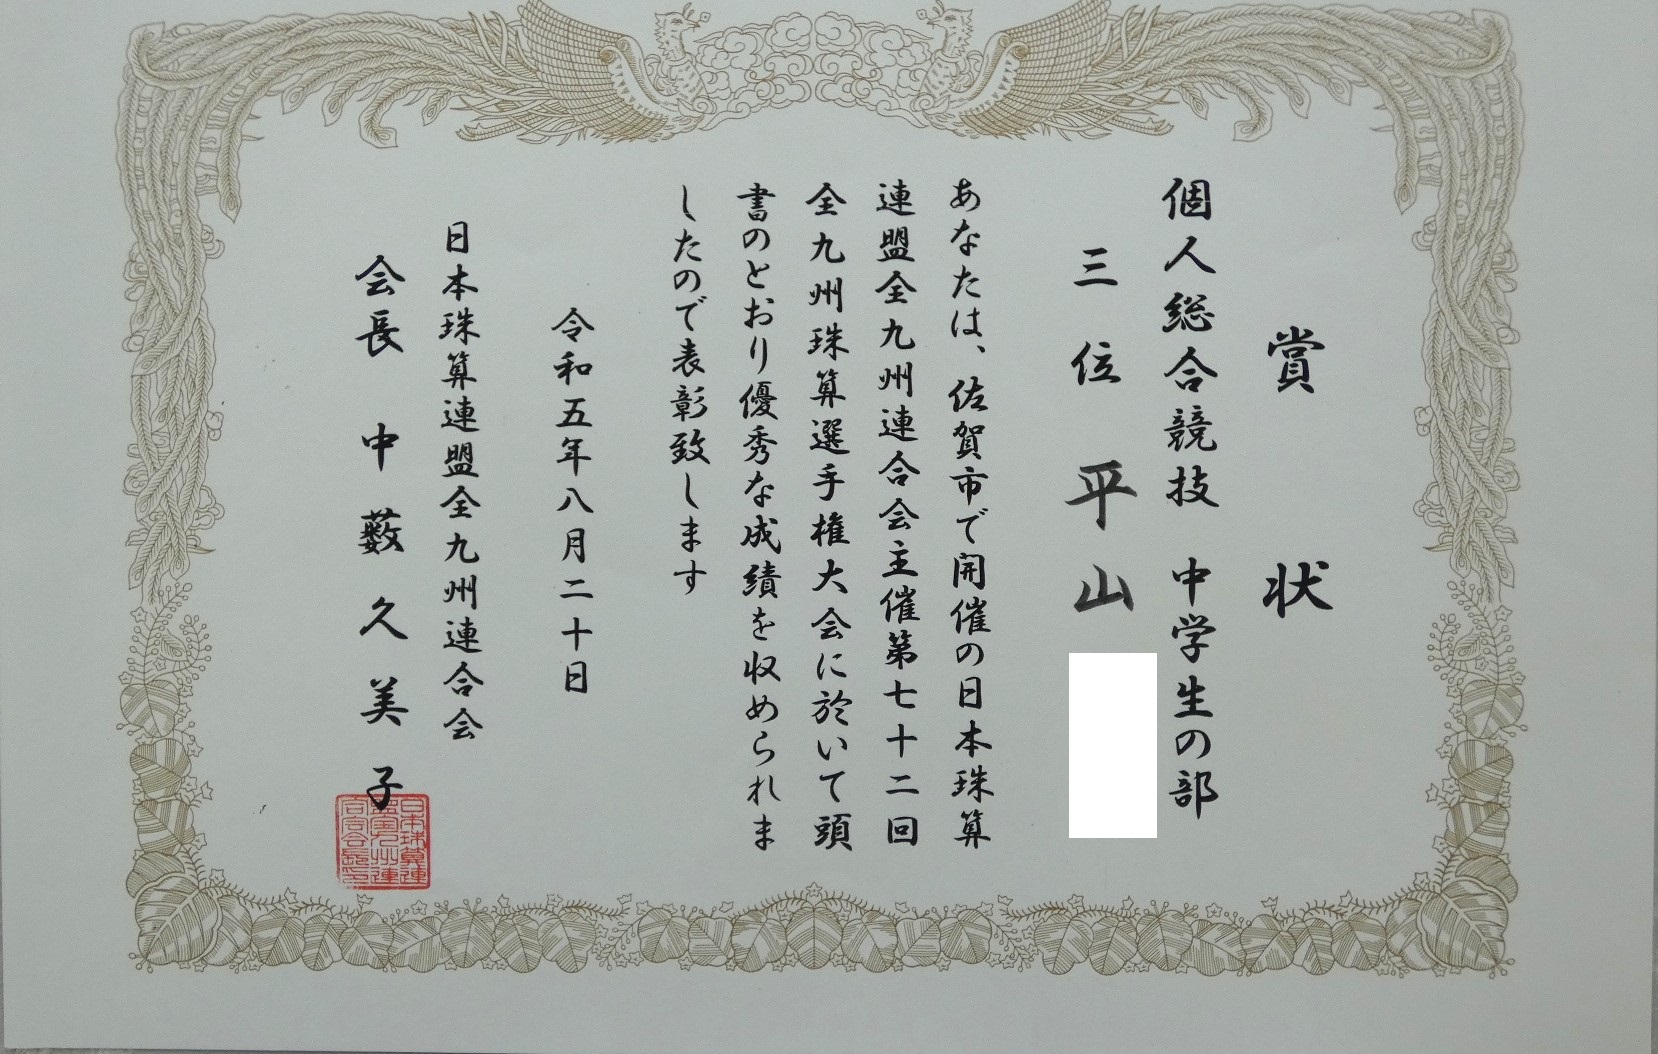 賞状
個人総合競技 中学生の部
三位 平山
あなたは、佐賀市で開催の日本珠算
連盟全九州連合会主催第七十二回
全九州珠算選手権大会に於いて頭
書のとおり優秀な成績を収められま
したので表彰致します
令和五年八月二十日
日本珠算連盟全九州連合会
会長 中藪久美子
日本珠算連
盟全九州連
合会会長印